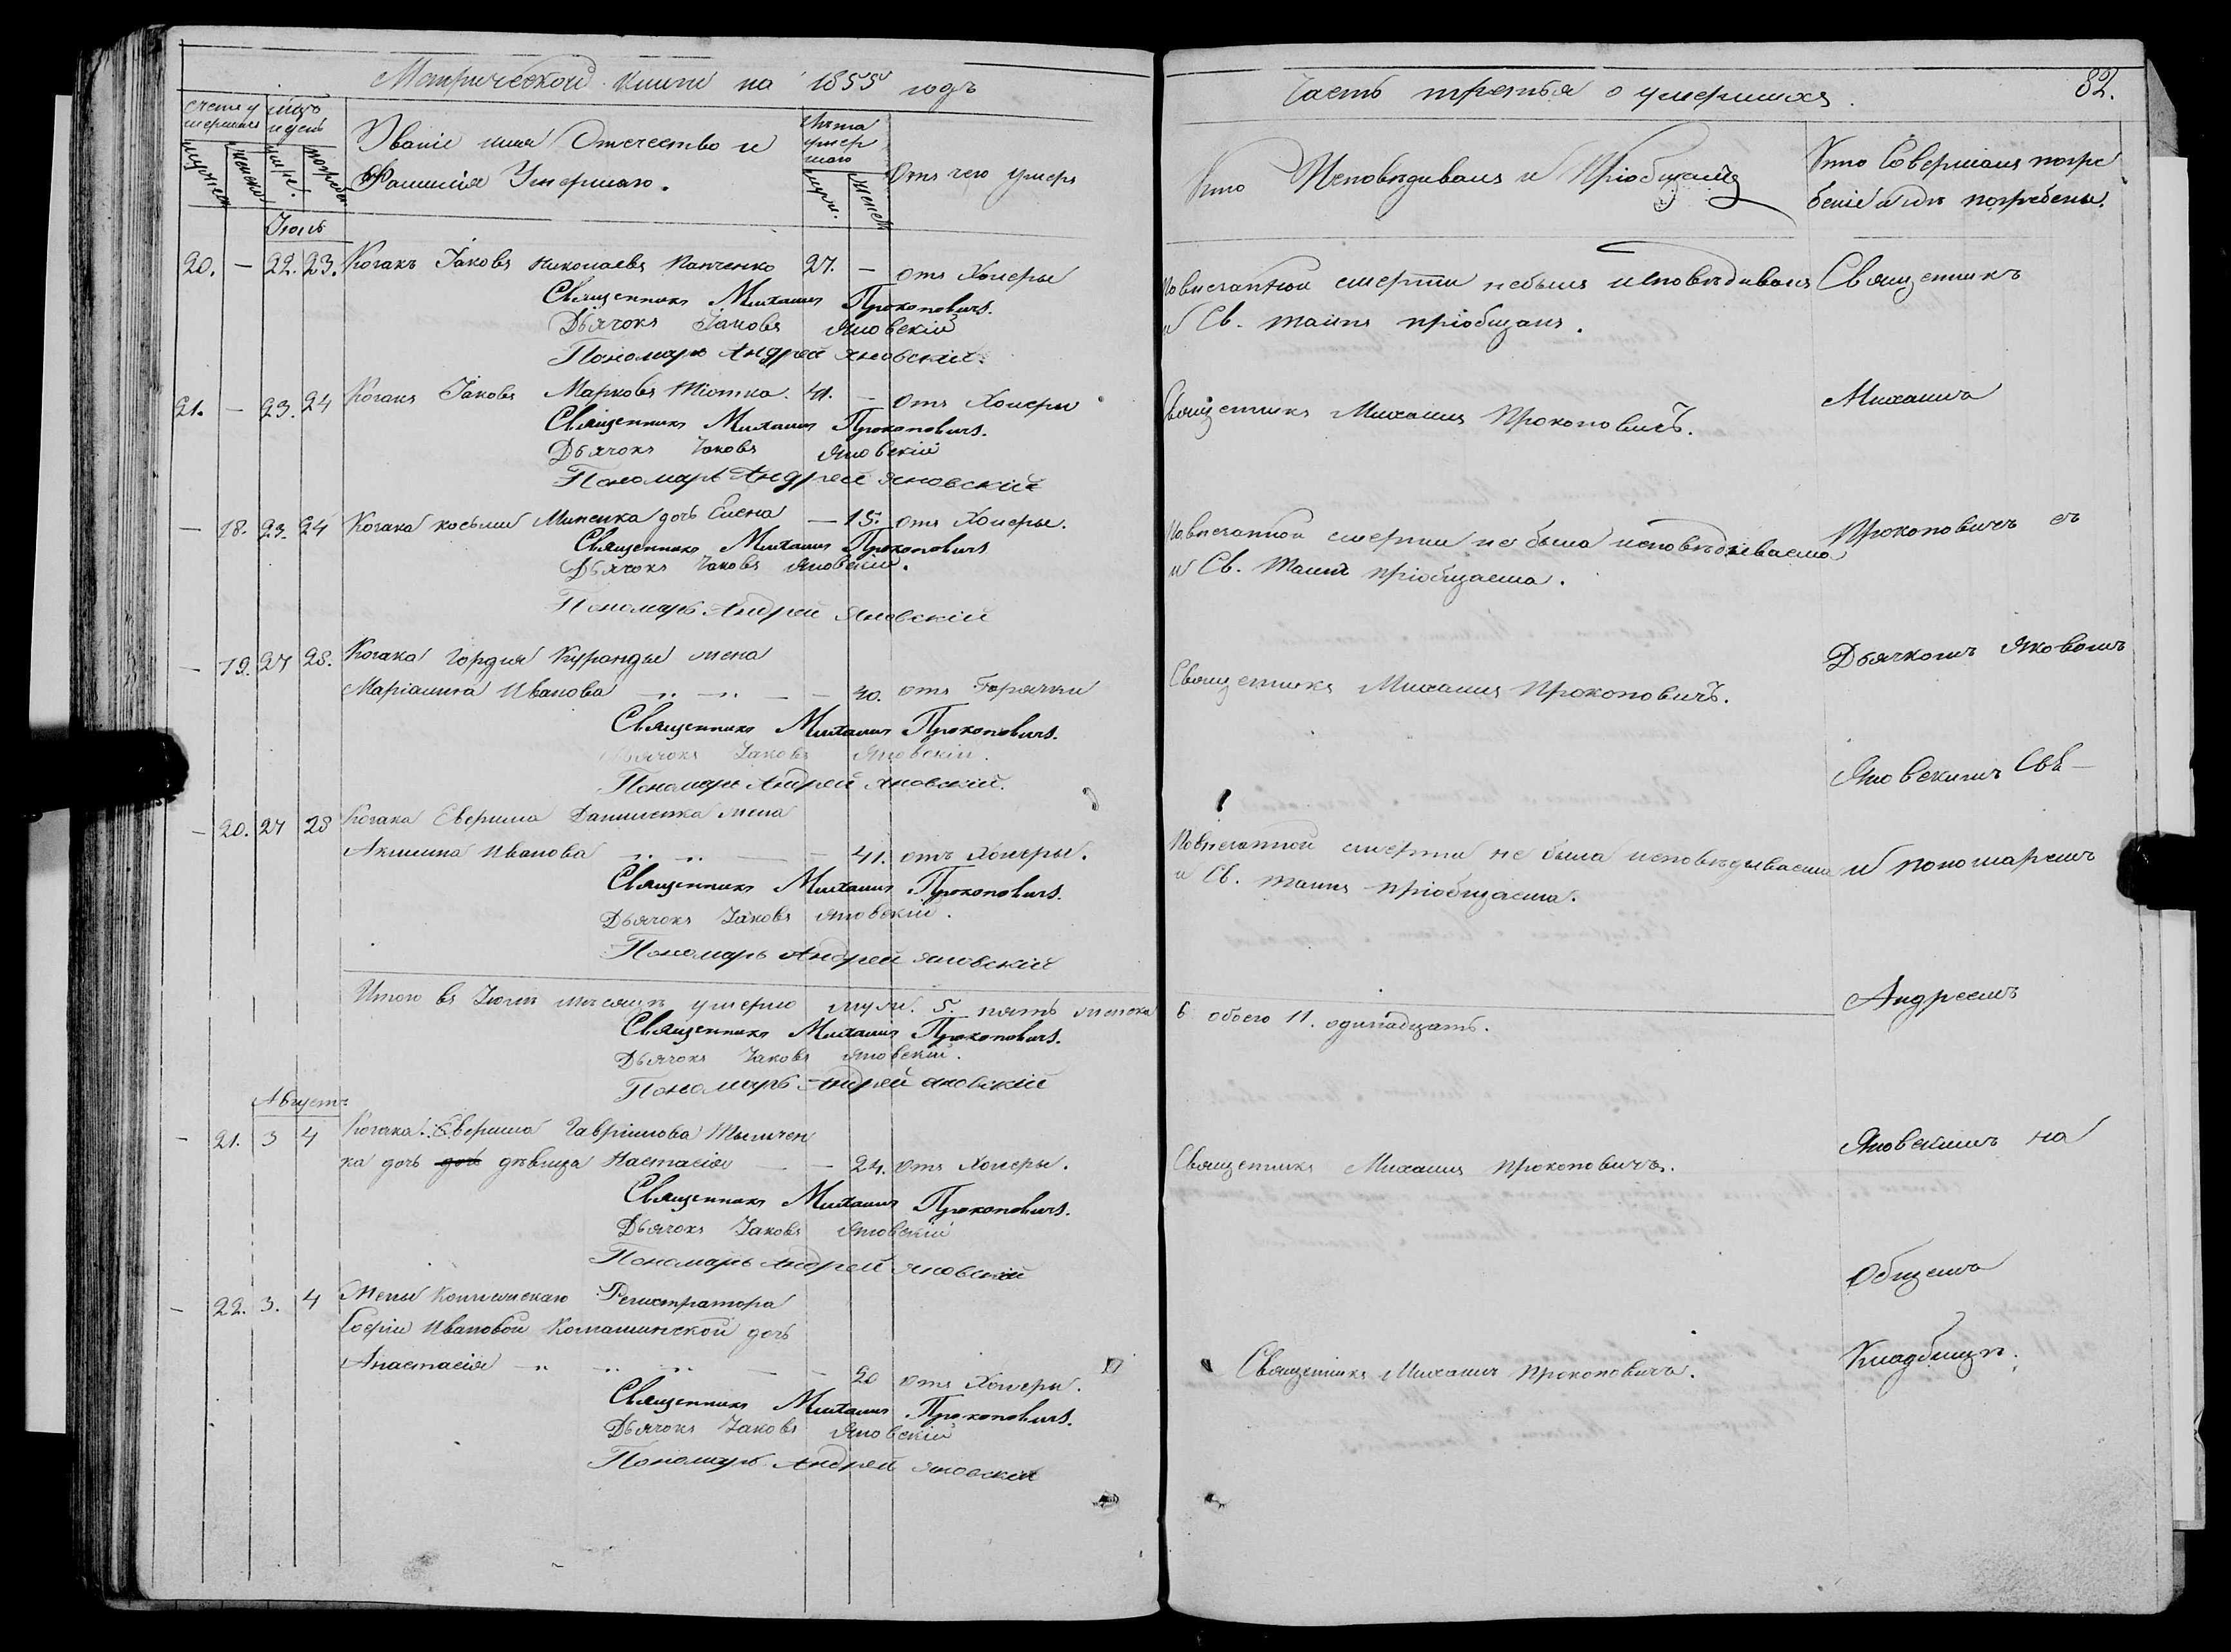 Метрической книги на 1855 годъ
счетъ умершихъ
мужеска
женска
мѣсяцъ и день
умер.
погреб.
Званіе имя Отечество и Фамилія Умершаго.
Лѣта умершаго
муж.
женск
Отъ чего умеръ
Іюль
20. — 22. 23. Козакъ Іаковъ Николаевъ Панченко 27. — отъ Холеры
Священникъ Михаилъ Прокоповичъ.
Дьячокъ Іаковъ Яновскій
Пономарь Андрей Яновскій.
21. — 23. 24 Козакъ Іаковъ Марковъ Тіотка. 41. — отъ Холеры
Священникъ Михаилъ Прокоповичъ.
Дьячокъ Іаковъ Яновскій
Пономарь Андрей Яновскій
— 18. 23. 24 Козака Косьмы Миненка дочь Елена — 15. отъ Холеры.
Священникъ Михаилъ Прокоповичъ
Дьячокъ Іаковъ Яновскій.
Пономарь Андрей Яновскій
— 19. 27 28. Козака Гордія Куранды жена
Маріамна Иванова — 40. отъ Горячки
Священникъ Михаилъ Прокоповичъ.
Дьячокъ Іаковъ Яновскій.
Пономарь Андрей Яновскій.
— 20. 27 28 Козака Еверила Даниленка жена
Акилина Иванова — 41. отъ Холеры.
Священникъ Михаилъ Прокоповичъ.
Дьячокъ Іаковъ Яновскій.
Пономарь Андрей Яновскій
Итого въ Іюлѣ мѣсяцѣ умерло муж. 5. пять женска
Священникъ Михаилъ Прокоповичъ.
Дьячокъ Іаковъ Яновскій.
Пономарь Андрей Яновскій
Августъ
— 21. 3 4 Козака Еверила Гавріилова
ка дочь дочь дѣвица Настасія — 24. отъ Холеры.
Священникъ Михаилъ Прокоповичъ.
Дьячокъ Іаковъ Яновскій
Пономарь Андрей Яновскій
— 22. 3. 4 Жены Коллежскаго Регистратора
Софіи Ивановой дочь
Анастасія — 20 отъ Холеры.
Священникъ Михаилъ Прокоповичъ.
Дьячокъ Іаковъ Яновскій
Пономарь Андрей Яновскій
Часть третья о умершихъ.
82.
Кто Исповѣдывалъ и Пріобщалъ
Кто Совершалъ погребеніе и гдѣ погребены.
По внезапной смерти небылъ исповѣдыванъ
и Св. таинъ пріобщанъ.
Священникъ Михаилъ Прокоповичъ.
По внезапной смерти не была исповѣдываема
и Св. Таинъ пріобщаема.
Священникъ Михаилъ Прокоповичъ.
По внезапной смерти не была исповѣдываема
и Св. таинъ пріобщаема.
6 обоего 11. одинадцать.
Священникъ Михаилъ Прокоповичъ.
Священникъ Михаилъ Прокоповичъ.
Священникъ
Михаилъ
Прокоповичъ съ
Дьячкомъ Яковомъ
Яновскимъ
и пономаремъ
Андреемъ
Яновскимъ на
Общемъ
Кладбищѣ.